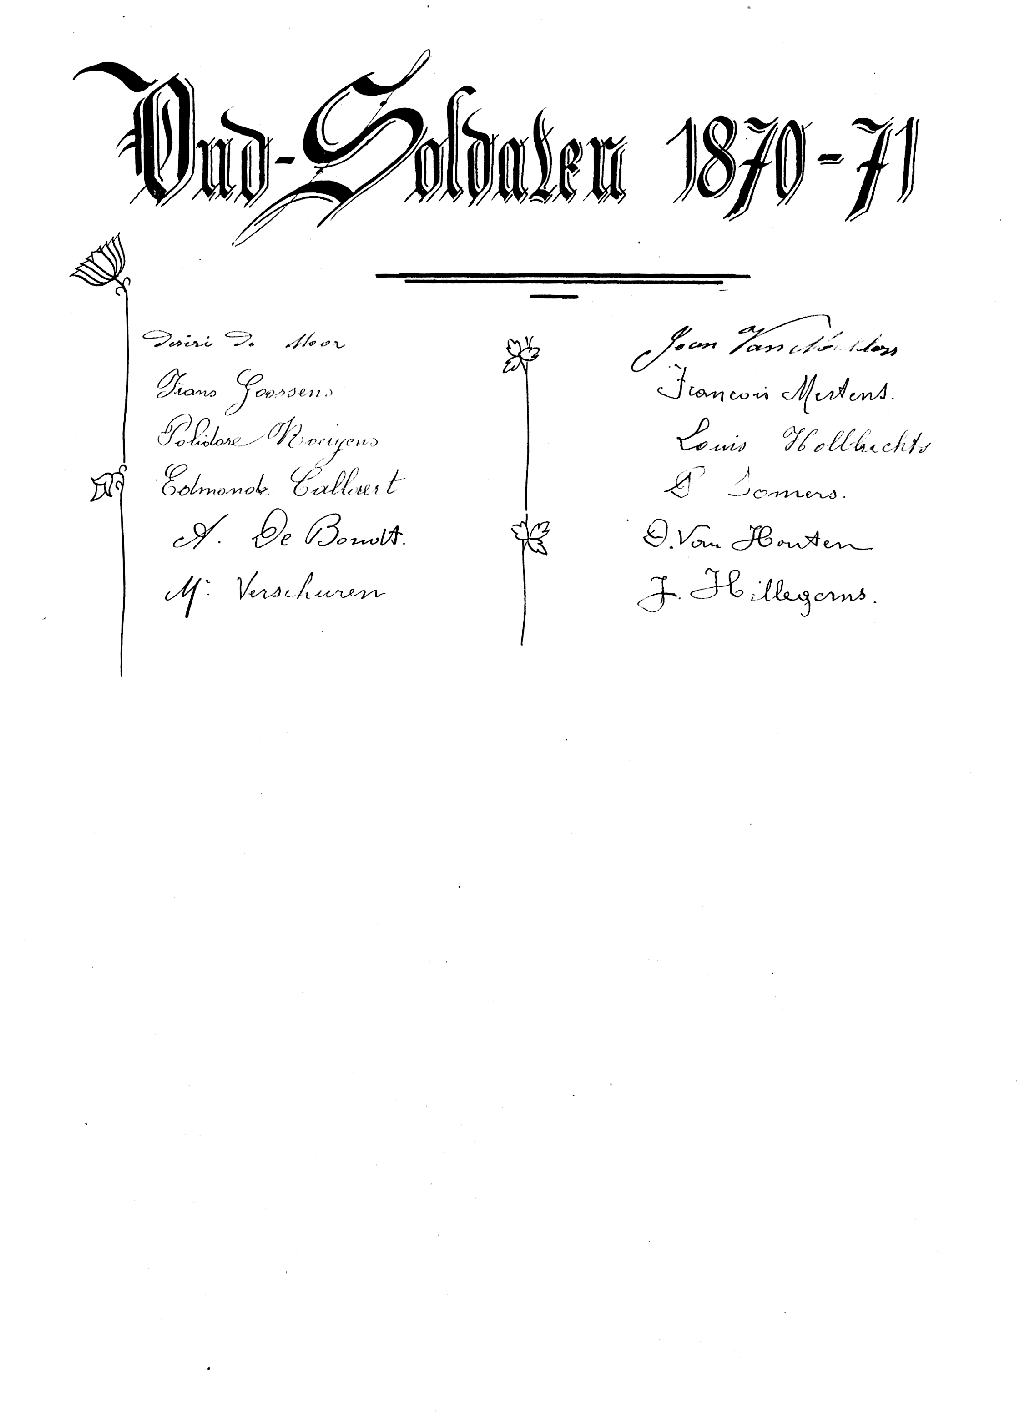 Oud-Soldaten 1870-71
Desiré De Moor
Frans Goossens
Polidore
Edmond Callaert
A. De Bondt.
M. Verschuren
Jean
Francois Mertens.
Louis Hollbrechts
P Somers.
D. Van Houten
J. Hillegerns.